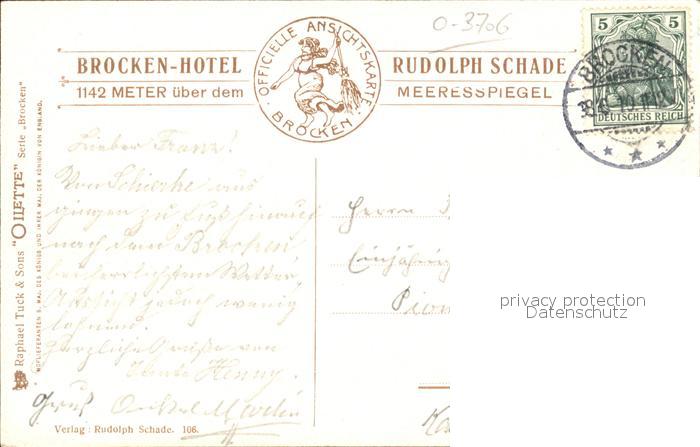 O-3706
OFFICIELLE ANSICHTSKARTE
BROCKEN
BROCKEN-HOTEL
1142 METER über dem
RUDOLPH SCHADE
MEERESSPIEGEL
5 5
DEUTSCHES REICH
BROCKEN
Raphael Tuck & Sons "OILETTE" Serie „Brocken"
HOFLIEFERANTEN S. MAJ. DES KÖNIGS UND IHRER MAJ. DER KÖNIGIN VON ENGLAND.
Lieber Franz!
Von Schierke aus
gingen zu Fuß hinauf
nach dem Brocken
bei herrlichstem Wetter,
Aussicht jedoch wenig
lohnend.
Herzliche Grüße von
Tante Henny.
Gruß Onkel Martin
Herrn
Einjährig
Pion
privacy protection
Datenschutz
Verlag: Rudolph Schade. 106.